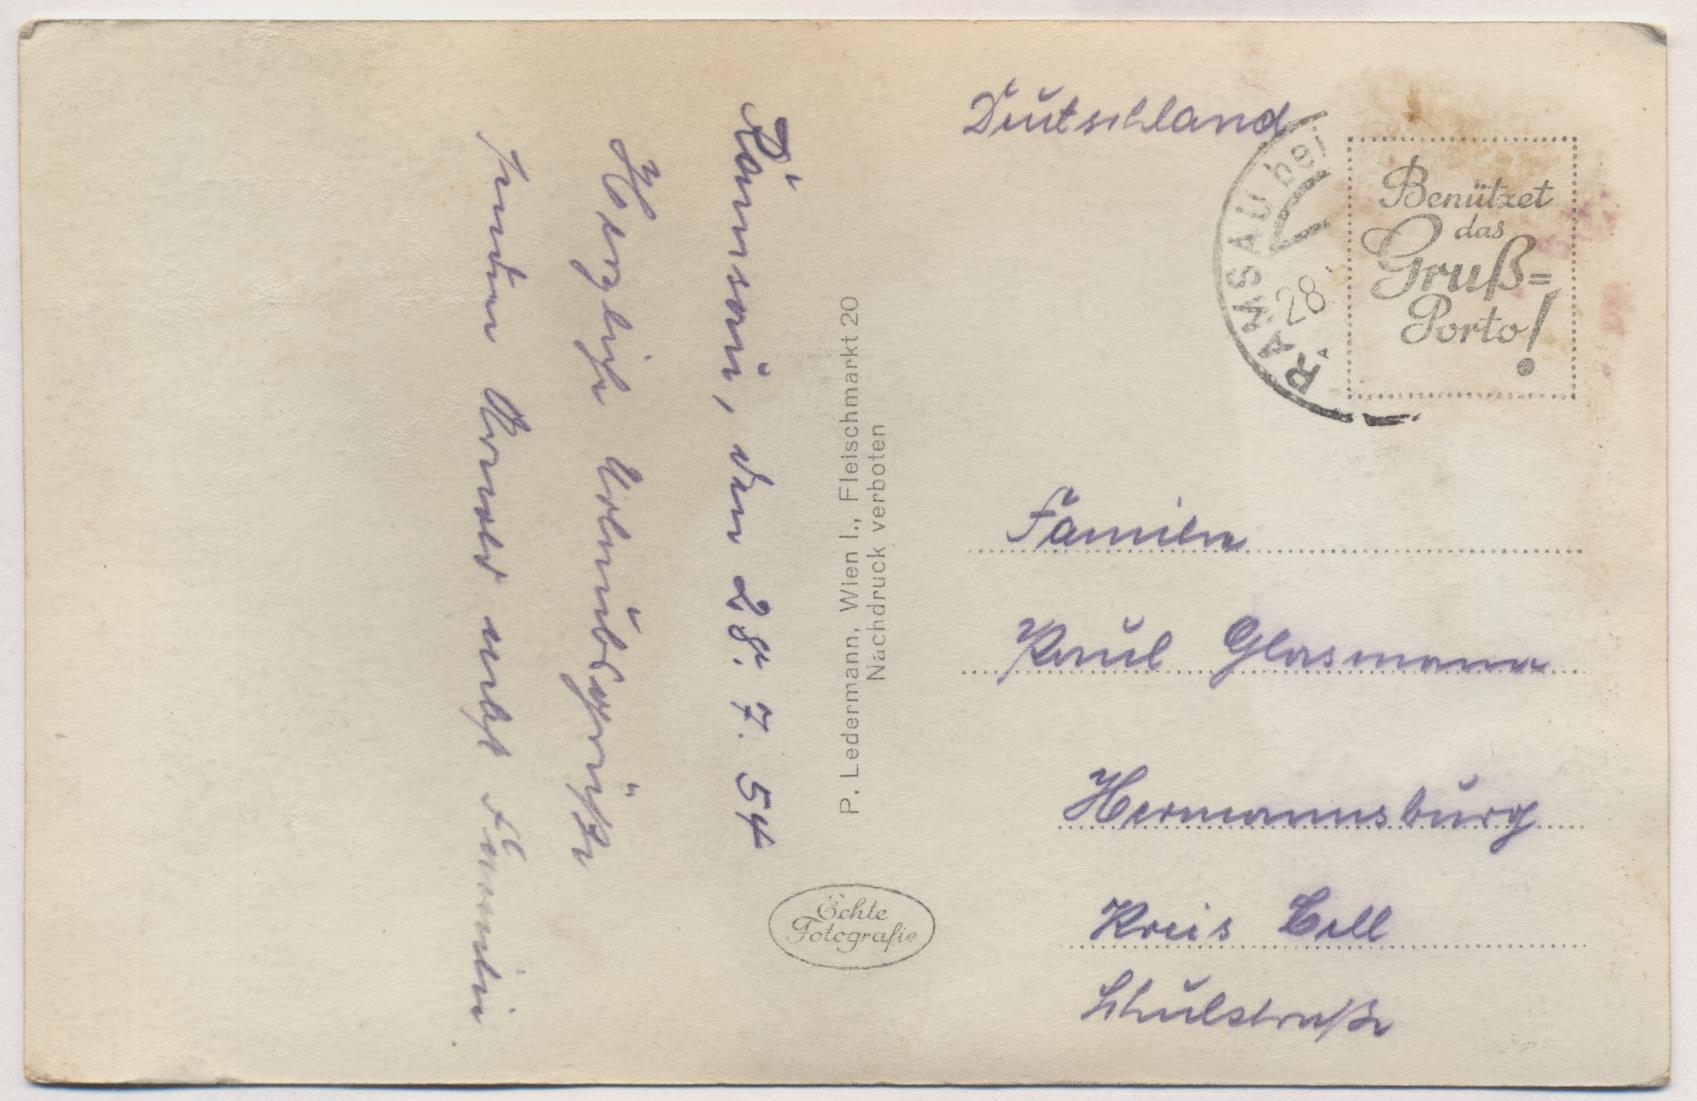 Ramsau, den 28. 7. 54
Herzliche Urlaubsgrüße
nebst Familie.
P. Ledermann, Wien I., Fleischmarkt 20
Nachdruck verboten
Echte
Fotografie
Deutschland
RAMSAU bei
28
Benützet
das
Gruß=
Porto!
Familie
Paul Glasmann
Hermannsburg
Kreis Cell
Schulstraße